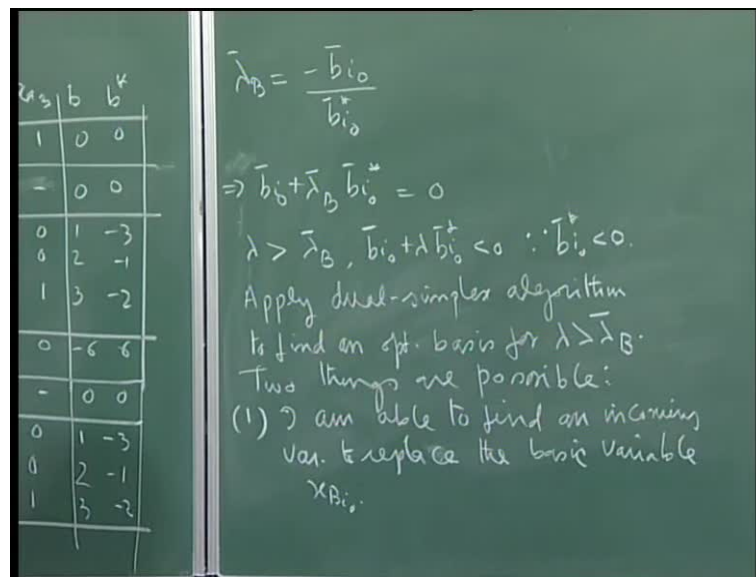 x₃ b b*
1 0 0
- 0 0
0 1 -3
0 2 -1
1 3 -2
0 -6 6
- 0 0
0 1 -3
0 2 -1
1 3 -2
λ̄_B = -b̄_{i₀} / b̄*_{i₀}
⇒ b̄_{i₀} + λ̄_B b̄*_{i₀} = 0
λ > λ̄_B, b̄_{i₀} + λ b̄*_{i₀} < 0 ∵ b̄*_{i₀} < 0.
Apply dual-simplex algorithm
to find an opt. basis for λ > λ̄_B.
Two things are possible:
(1) I am able to find an incoming
var. to replace the basic variable
x_{B_{i₀}}.